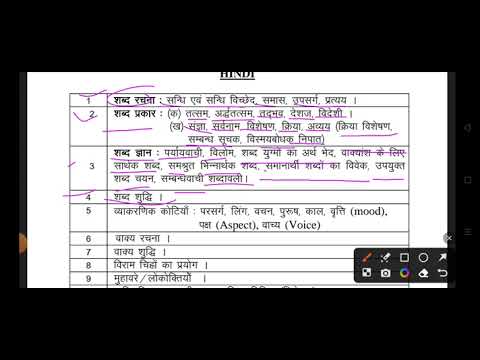 HINDI
1 शब्द रचना : सन्धि एवं सन्धि विच्छेद, समास, उपसर्ग, प्रत्यय ।
2 शब्द प्रकार : (क) तत्सम, अर्द्धतत्सम, तद्भव, देशज, विदेशी ।
(ख) संज्ञा, सर्वनाम, विशेषण, क्रिया, अव्यय (क्रिया विशेषण,
सम्बन्ध सूचक, विस्मयबोधक निपात)
3 शब्द ज्ञान : पर्यायवाची, विलोम, शब्द युग्मों का अर्थ भेद, वाक्यांश के लिए
सार्थक शब्द, समश्रुत भिन्नार्थक शब्द, समानार्थी शब्दों का विवेक, उपयुक्त
शब्द चयन, सम्बन्धवाची शब्दावली ।
4 शब्द शुद्धि ।
5 व्याकरणिक कोटियाँ : परसर्ग, लिंग, वचन, पुरूष, काल, वृत्ति (mood),
पक्ष (Aspect), वाच्य (Voice)
6 वाक्य रचना ।
7 वाक्य शुद्धि ।
8 विराम चिह्नों का प्रयोग ।
9 मुहावरे/लोकोक्तियाँ ।